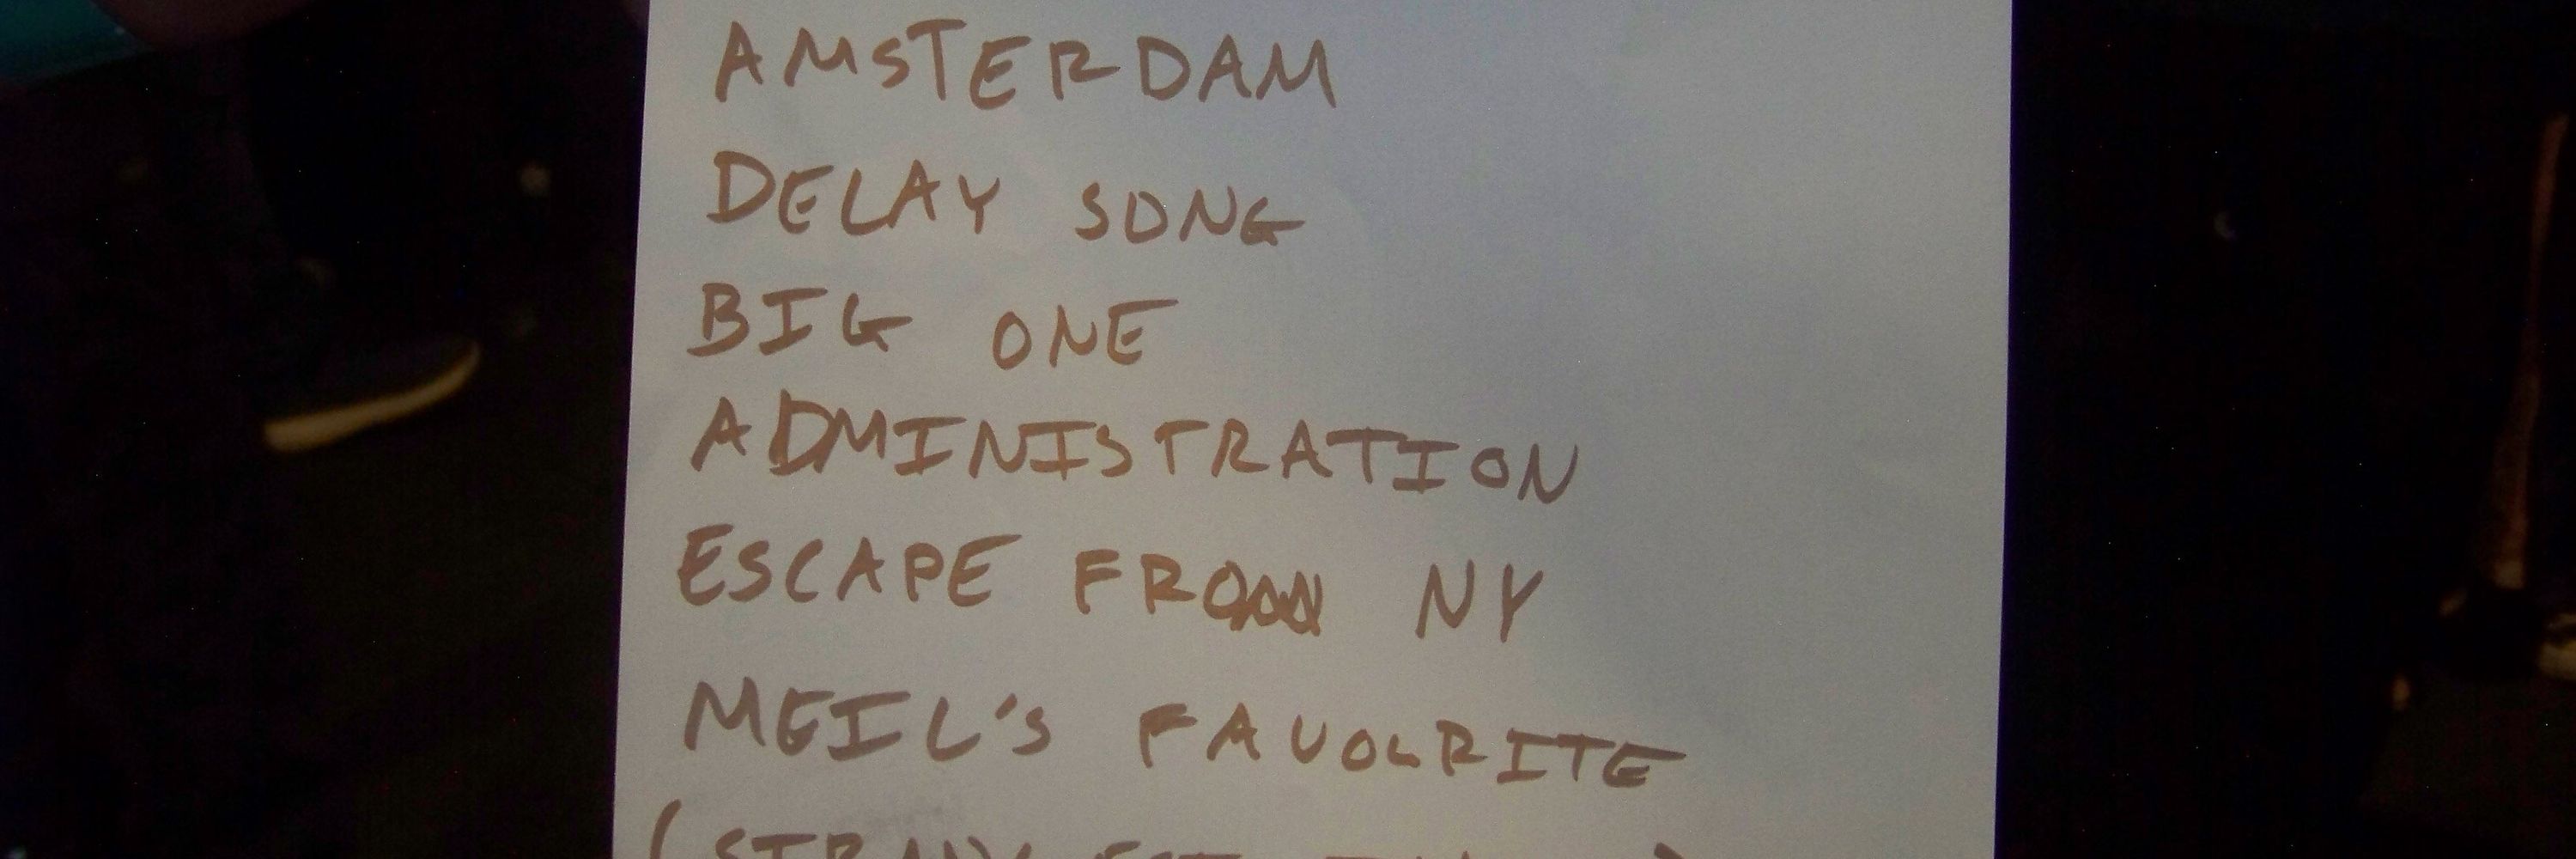 AMSTERDAM
DELAY SONG
BIG ONE
ADMINISTRATION
ESCAPE FROM NY
MEIL'S FAVOURITE